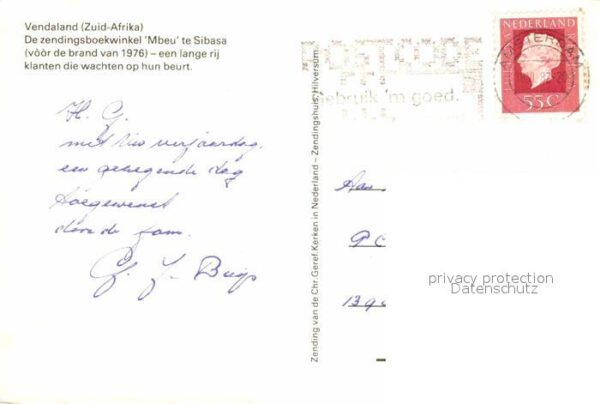 Vendaland (Zuid-Afrika)
De zendingsboekwinkel 'Mbeu' te Sibasa
(vòòr de brand van 1976) – een lange rij
klanten die wachten op hun beurt.
H. G.
met Uw verjaardag.
een gezegende dag
toegewenst
door de fam.
Zending van de Chr.Geref.Kerken in Nederland – Zendingshuis, Hilversum.
POSTCODE
gebruik 'm goed.
NEDERLAND
55C
AMSTERDAM
Aan
privacy protection
Datenschutz